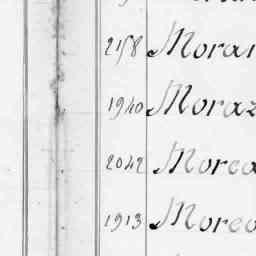 2158 Moran
1940 Moraz
2042 Morea
1913 Moreo